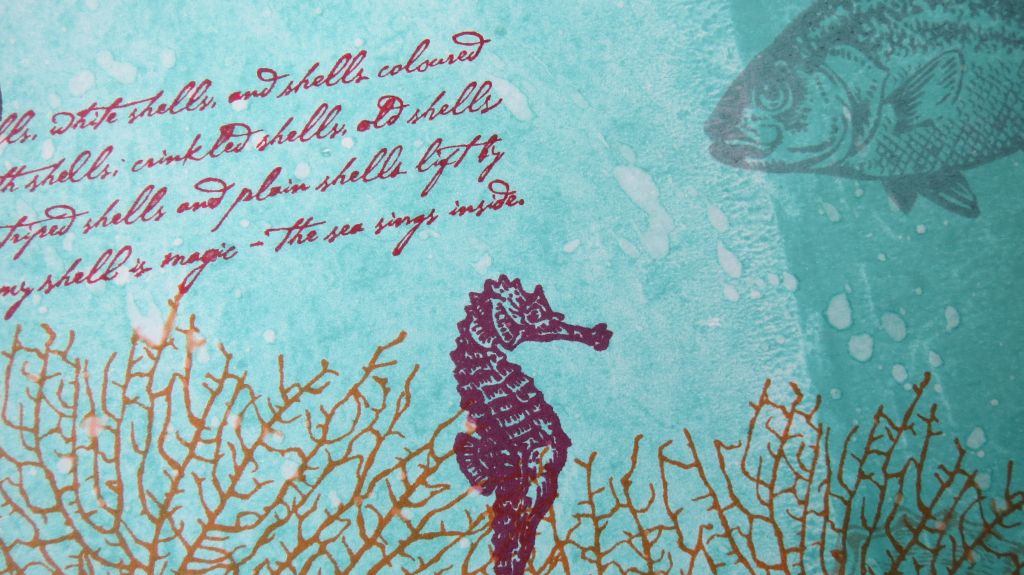 lls, white shells, and shells coloured
th shells; crinkled shells, old shells
triped shells and plain shells light by
my shell is magic - the sea sings inside.